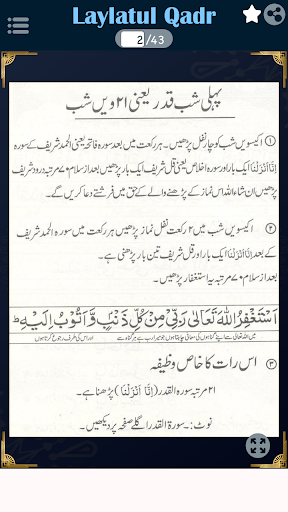 Laylatul Qadr
2 /43
پہلی شب قدر یعنی ۲۱ ویں شب
① اکیسویں شب کو چار نفل پڑھیں۔ ہر رکعت میں بعد سورہ فاتحہ یعنی الحمد شریف کے سورہ
اِنَّا اَنْزَلْنَا ایک بار اور سورہ اخلاص یعنی قل شریف ایک بار پڑھیں بعد از سلام ۷۰ مرتبہ درود شریف
پڑھیں ان شاء اللہ اس نماز کے پڑھنے والے کے حق میں فرشتے دعا کریں گے۔
② اکیسویں شب میں ۲ رکعت نفل نماز پڑھیں ہر رکعت میں سورہ الحمد شریف
کے بعد اِنَّا اَنْزَلْنَا ایک بار اور قل شریف تین بار پڑھنی ہے۔
بعد از سلام ۷۰ مرتبہ یہ استغفار پڑھیں۔
اَسْتَغْفِرُ اللهَ تَعَالٰی رَبِّیْ مِنْ کُلِّ ذَنْۢبٍ وَّاَتُوْبُ اِلَیْهِ ؕ
میں اللہ تعالیٰ سے اپنے گناہ کی معافی چاہتا ہوں جو میرا رب ہے ہر گناہ سے اور اس کی طرف رجوع کرتا ہوں
③ اس رات کا خاص وظیفہ
۲۱ مرتبہ سورہ القدر (اِنَّا اَنْزَلْنَا) پڑھنا ہے۔
نوٹ:۔ سورۃ القدر اگلے صفحہ پر دیکھیں۔